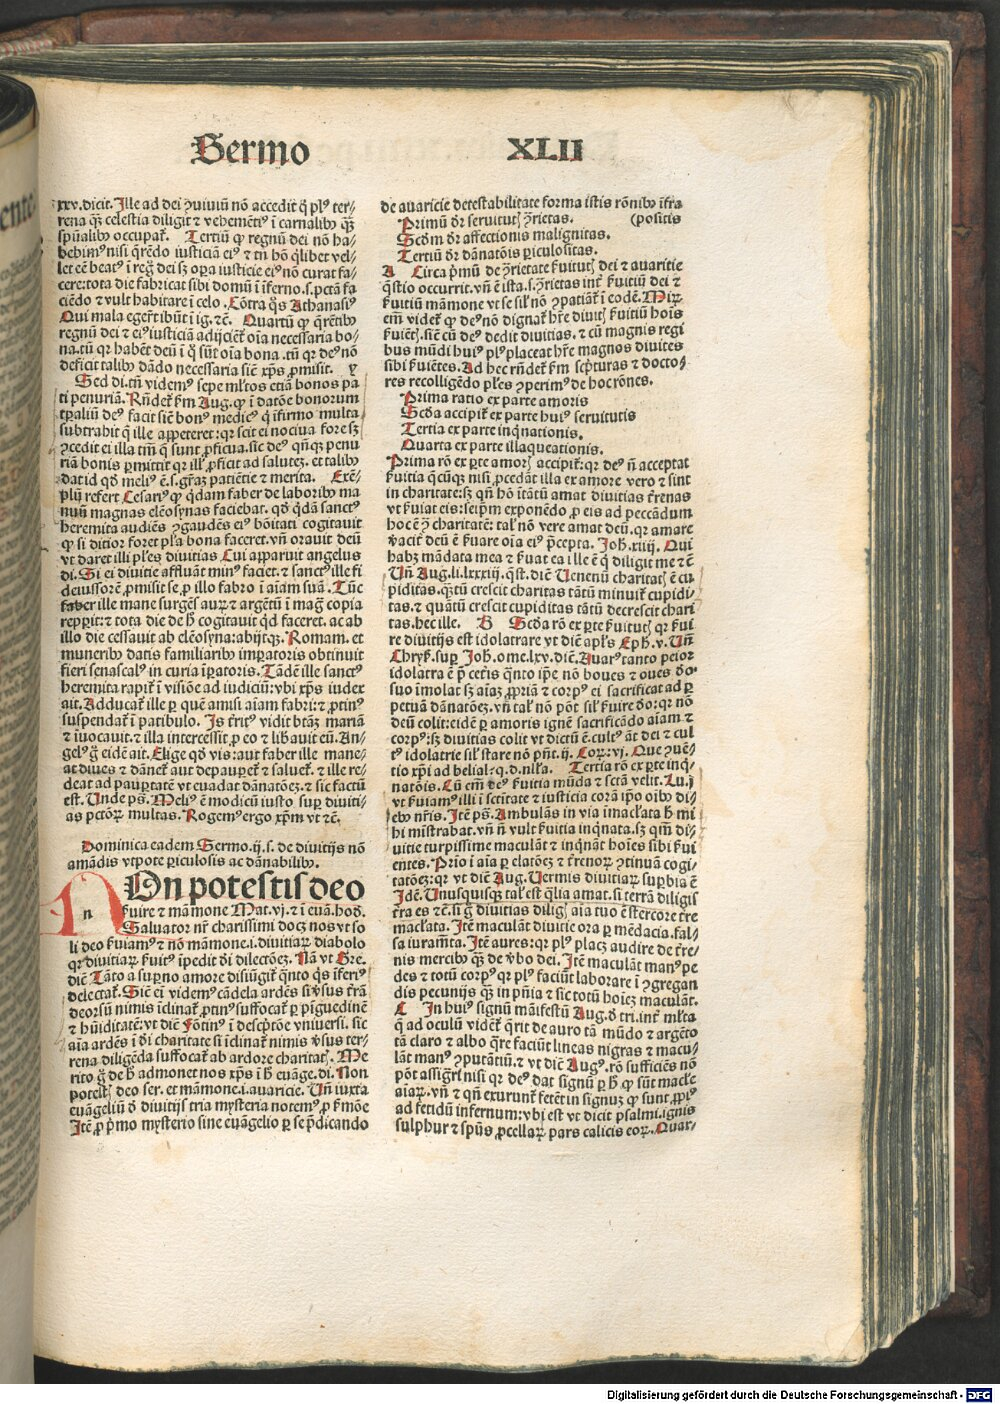 Sermo XLII
xxv. dicit. Ille ad dei ꝯuiuiū nō accedit q̇ plꝰ ter⸗
rena qꝫ celestia diligit ⁊ vehemētiꝰ ī carnalibꝰ qꝫ
spūalibꝰ occupat᷑. Tertiū ꝙ regnū dei nō ha⸗
bebimꝰ nisi q̄rēdo iusticiā eiꝰ ⁊ tn̄ hō q̇libet vel⸗
let eē beatꝰ ī reg̊ dei sꝫ oꝑa iusticie eiꝰ nō curat fa⸗
cere: tota die fabricat sibi domū ī īferno .s. pctā fa
ciēdo ⁊ vult habitare ī celo. Cōtra q̊s Athanasiꝰ
Qui mala egerūt ibūt ī ig. ⁊c̄. Quartū ꝙ q̄rētibꝰ
regnū dei ⁊ eiꝰ iusticiā adijciēt᷑ oīa necessaria bo⸗
na. tū qꝛ habēt deū ī q̊ sūt oīa bona. tū qꝛ deꝰ nō
deficit talibꝰ dādo necessaria sic̄ xp̄s ꝓmisit. y
Sed di. tn̄ videmꝰ sepe ml̄tos etiā bonos pa
ti penuriā. Rn̄det᷑ ẜm Aug. ꝙ ī datōe bonorum
tꝑaliū deꝰ facit sic̄ bonꝰ medicꝰ q̇ īfirmo multa
subtrahit q̄ ille appeteret: qꝛ scit ei nociua fore sꝫ
ꝯcedit ei illa tm̄ q̄ sunt ꝓficua. sic deꝰ qn̄qꝫ penu
riā bonis ꝑmittit qꝛ ill᷑ ꝓficit ad salutez. et talibꝰ
dat id qd̄ meliꝰ ē .s. gr̄az patiētie ⁊ merita. Exē⸗
plū refert Cesariꝰ ꝙ q̇dam faber de laboribꝰ ma
nuū magnas eleosynas faciebat. qd̄ q̇dā sanctꝰ
heremita audiēs ⁊ ꝯgaudēs eiꝰ bōitati cogitauit
ꝙ si ditior foret pl᷑a bona faceret. vn̄ orauit deū
vt daret illi pl᷑es diuitias Cui apparuit angelus
di. Si ei diuitie affluāt minꝰ faciet. ⁊ sanctꝰ ille fi
deiussorē ꝓmisit se ꝓ illo fabro ī aīam suā. Tūc
faber ille mane surgēs auꝝ ⁊ argētū ī maḡ copia
reppit: ⁊ tota die de h̊ cogitauit qd̄ faceret. ac ab
illo die cessauit ab eleōsyna: abijtqꝫ. Romam. et
muneribꝰ datis familiaribꝰ imꝑatoris obtinuit
fieri senascalꝰ in curia īꝑatoris. Tādē ille sanctꝰ
heremita rapit᷑ ī visiōe ad iudiciū: vbi xp̄s iudex
ait. Adducat᷑ ille ꝑ quē amisi aīam fabri: ⁊ ꝓtinꝰ
suspendat᷑ ī patibulo. Is t̄ritꝰ vidit btāꝫ mariā
⁊ īuocauit. ⁊ illa intercessit ꝓ eo ⁊ lib̄auit eū. An⸗
gelꝰ g̊ eidē ait. Elige qd̄ vis: aut faber ille mane⸗
at diues ⁊ dānet᷑ aut depauꝑet᷑ ⁊ saluet᷑. ⁊ ille re⸗
deat ad pauꝑtatē vt euadat dānatōez. ⁊ sic factū
est. Unde ps̄. Meliꝰ ē modicū iusto suꝑ diuiti⸗
as pctōꝝ multas. Rogemꝰ ergo xp̄m vt ⁊c̄.
Dominica eadem Sermo .ij. s. de diuitijs nō
amādis vtpote ꝑiculosis ac dānabilibꝰ.
NOn potestis deo
ẜuire ⁊ māmone Mat. vj. ⁊ ī euā. hod.
Saluator nr̄ charissimi docꝫ nos vt so
li deo ẜuiamꝰ ⁊ nō māmone .i. diuitiaꝝ diabolo
qꝛ diuitiaꝝ ẜuitꝰ īpedit di dilectōez. Nā vt Gre.
dic̄. Tāto a suꝑno amore disiūgit᷑ q̇nto q̇s īferiꝰ
delectat᷑. Sic̄ ei videmꝰ cādela ardēs si v̓sus t̄rā
deorsū nimis īclinat᷑ ꝓtinꝰ suffocat᷑ ꝑ pīguedinē
⁊ hūiditatē: vt dic̄ Fōtinꝰ ī descptōe vniuersi. sic
aīa ardēs ī di charitate si īclinat᷑ nimis v̓sus ter⸗
rena diligēda suffocat᷑ ab ardore charitatꝭ. Me
rito g̊ de h̊ admonet nos xp̄s ī h̊ euāge. di. Non
potestꝭ deo ser. et māmone .i. auaricie. Un̄ iuxta
euāgeliū d̓ diuitijs tria mysteria notemꝰ ꝓ ẜmōe
Itē ꝓ pͥmo mysterio sine euāgelio ꝑ se p̄dicando
de auaricie detestabilitate forma istis rōnibꝰ īfra
Primū dr̄ seruitutꝭ ꝯrietas. (positis
Scd̄m dr̄ affectionis malignitas.
Tertiū dr̄ dānatōis ꝑiculositas.
A Circa pͥmū de ꝯrietate ẜuitutꝭ dei ⁊ auaritie
q̄stio occurrit. vn̄ ē ista .s. ꝯrietas int̄ ẜuitiū dei ⁊
ẜuitiū māmone vt se sil᷑ nō ꝯpatiāt᷑ ī eodē. Miꝝ
em̄ videt᷑ ꝙ deꝰ nō dignat᷑ hr̄e diuitꝭ ẜuitiū hoīs
ẜuiētꝭ. sic̄ cū deꝰ dedit diuitias. ⁊ cū magnis regi
bus mūdi huiꝰ plꝰ placeat hr̄e magnos diuites
sibi ẜuiētes. Ad hec rn̄det᷑ ẜm scpturas ⁊ docto⸗
res recolligēdo pl᷑es ꝯperimꝰ de hoc rōnes.
Prima ratio ex parte amoris
Scd̄a accipit᷑ ex parte huiꝰ seruitutis
Tertia ex parte inq̇nationis.
Quarta ex parte illaqueationis.
Prima rō ex ꝑte amorꝭ accipit᷑: qꝛ deꝰ n̄ acceptat
ẜuitia q̄cūqꝫ nisi ꝓcedāt illa ex amore vero ⁊ sint
in charitate: sꝫ qn̄ hō ītātū amat diuitias t̄renas
vt ẜuiat eis: seip̄m exponēdo ꝓ eis ad peccādum
hoc ē ꝯ charitatē: tal᷑ nō vere amat deū. qꝛ amare
vacit̄ deū ē ẜuare oīa eiꝰ p̄cepta. Joh. xiiij. Qui
habꝫ mādata mea ⁊ ẜuat ea ille ē q̇ diligit me ⁊c̄
Un̄ Aug. li. lxxxiij. q̄st. dic̄. Uenenū charitatꝭ ē cu
piditas. q̄tū crescit charitas tātū minuit᷑ cupidi⸗
tas. ⁊ quātū crescit cupiditas tātū decrescit chari
tas. hec ille. B Scd̄a rō ex ꝑte ẜuitutꝭ qꝛ ẜui
re diuitijs est idolatrare vt dic̄ apl᷑s Eph. v. Un̄
Chryẜ. suꝑ Joh. ome. lxv. dic̄. Auarꝰ tanto peior
idolatra ē p̄ cet̄is q̇nto ip̄e nō boues ⁊ oues d̓o⸗
suo īmolat sꝫ aīaz ꝓpriā ⁊ corpꝰ ei sacrificat ad ꝑ
petuā dānatōez. vn̄ tal᷑ nō pōt sil᷑ ẜuire d̓o: qꝛ nō
deū colit: eidē ꝑ amoris ignē sacrificādo aīam ⁊
corpꝰ: sꝫ diuitias colit vt dictū ē. cultꝰ āt dei ⁊ cul
tꝰ idolatrie sil᷑ stare nō pn̄t. ij. Coꝝ. vj. Que ꝯuē⸗
tio xp̄i ad belial: q. d. nl᷑la. Tertia rō ex ꝑte inq̇⸗
natōis. Cū em̄ deꝰ ẜuitia mūda ⁊ sctā velit. Lu. j
vt ẜuiamꝰ illi ī sctitate ⁊ iusticia corā ip̄o oībꝰ di⸗
ebꝰ nr̄is. Itē ps̄. Ambulās in via īmacl᷑ata h̊ mi
hi mīstrabat. vn̄ n̄ vult ẜuitia inq̇nata. sꝫ qm̄ di⸗
uitie turpissime maculāt ⁊ inq̇nāt hoīes sibi ẜui
entes. Prīo ī aīa ꝑ elatōez ⁊ t̄renoꝝ ꝯtinuā cogi⸗
tatōez: qꝛ vt dic̄ Aug. Uermis diuitiaꝝ suꝑbia ē
Idē. Unusquisqꝫ tal᷑ est q̄lia amat. si terrā diligis
t̄ra es ⁊c̄. si g̊ diuitias diligꝭ aīa tuo ē stercore t̄re
macl᷑ata. Itē maculāt diuitie ora ꝑ mēdacia. fal⸗
sa iuramēta. Itē aures: qꝛ plꝰ placꝫ audire de t̄re⸗
nis mercibꝰ qꝫ de v̓bo dei. Itē maculāt manꝰ pe
des ⁊ totū corpꝰ qꝛ plꝰ faciūt laborare ī ꝯgregan
dis pecunijs qꝫ in pn̄ia ⁊ sic totū hoīez maculāt.
C In huiꝰ signū māifestū Aug. d̓ tri. int̄ ml᷑ta
q̄ ad oculū vidēt᷑ q̄rit de auro tā mūdo ⁊ argēto
tā claro ⁊ albo q̄re faciūt lineas nigras ⁊ macu⸗
lāt manꝰ ꝯputātiū. ⁊ vt dic̄ Augꝰ. rō sufficiēs nō
pōt assig̃ri nisi qꝛ deꝰ dat signū ꝑ h̊ ꝙ sūt macl᷑e
aīaꝝ. vn̄ ⁊ qn̄ exurunt᷑ fetēt in signuꝫ ꝙ sunt ꝓpͥi
ad fetidū infernum: vbi est vt dicit psalmi. ignis
sulphur ⁊ spūs ꝓcellaꝝ pars calicis eoꝝ. Quar⸗
Digitalisierung gefördert durch die Deutsche Forschungsgemeinschaft - DFG